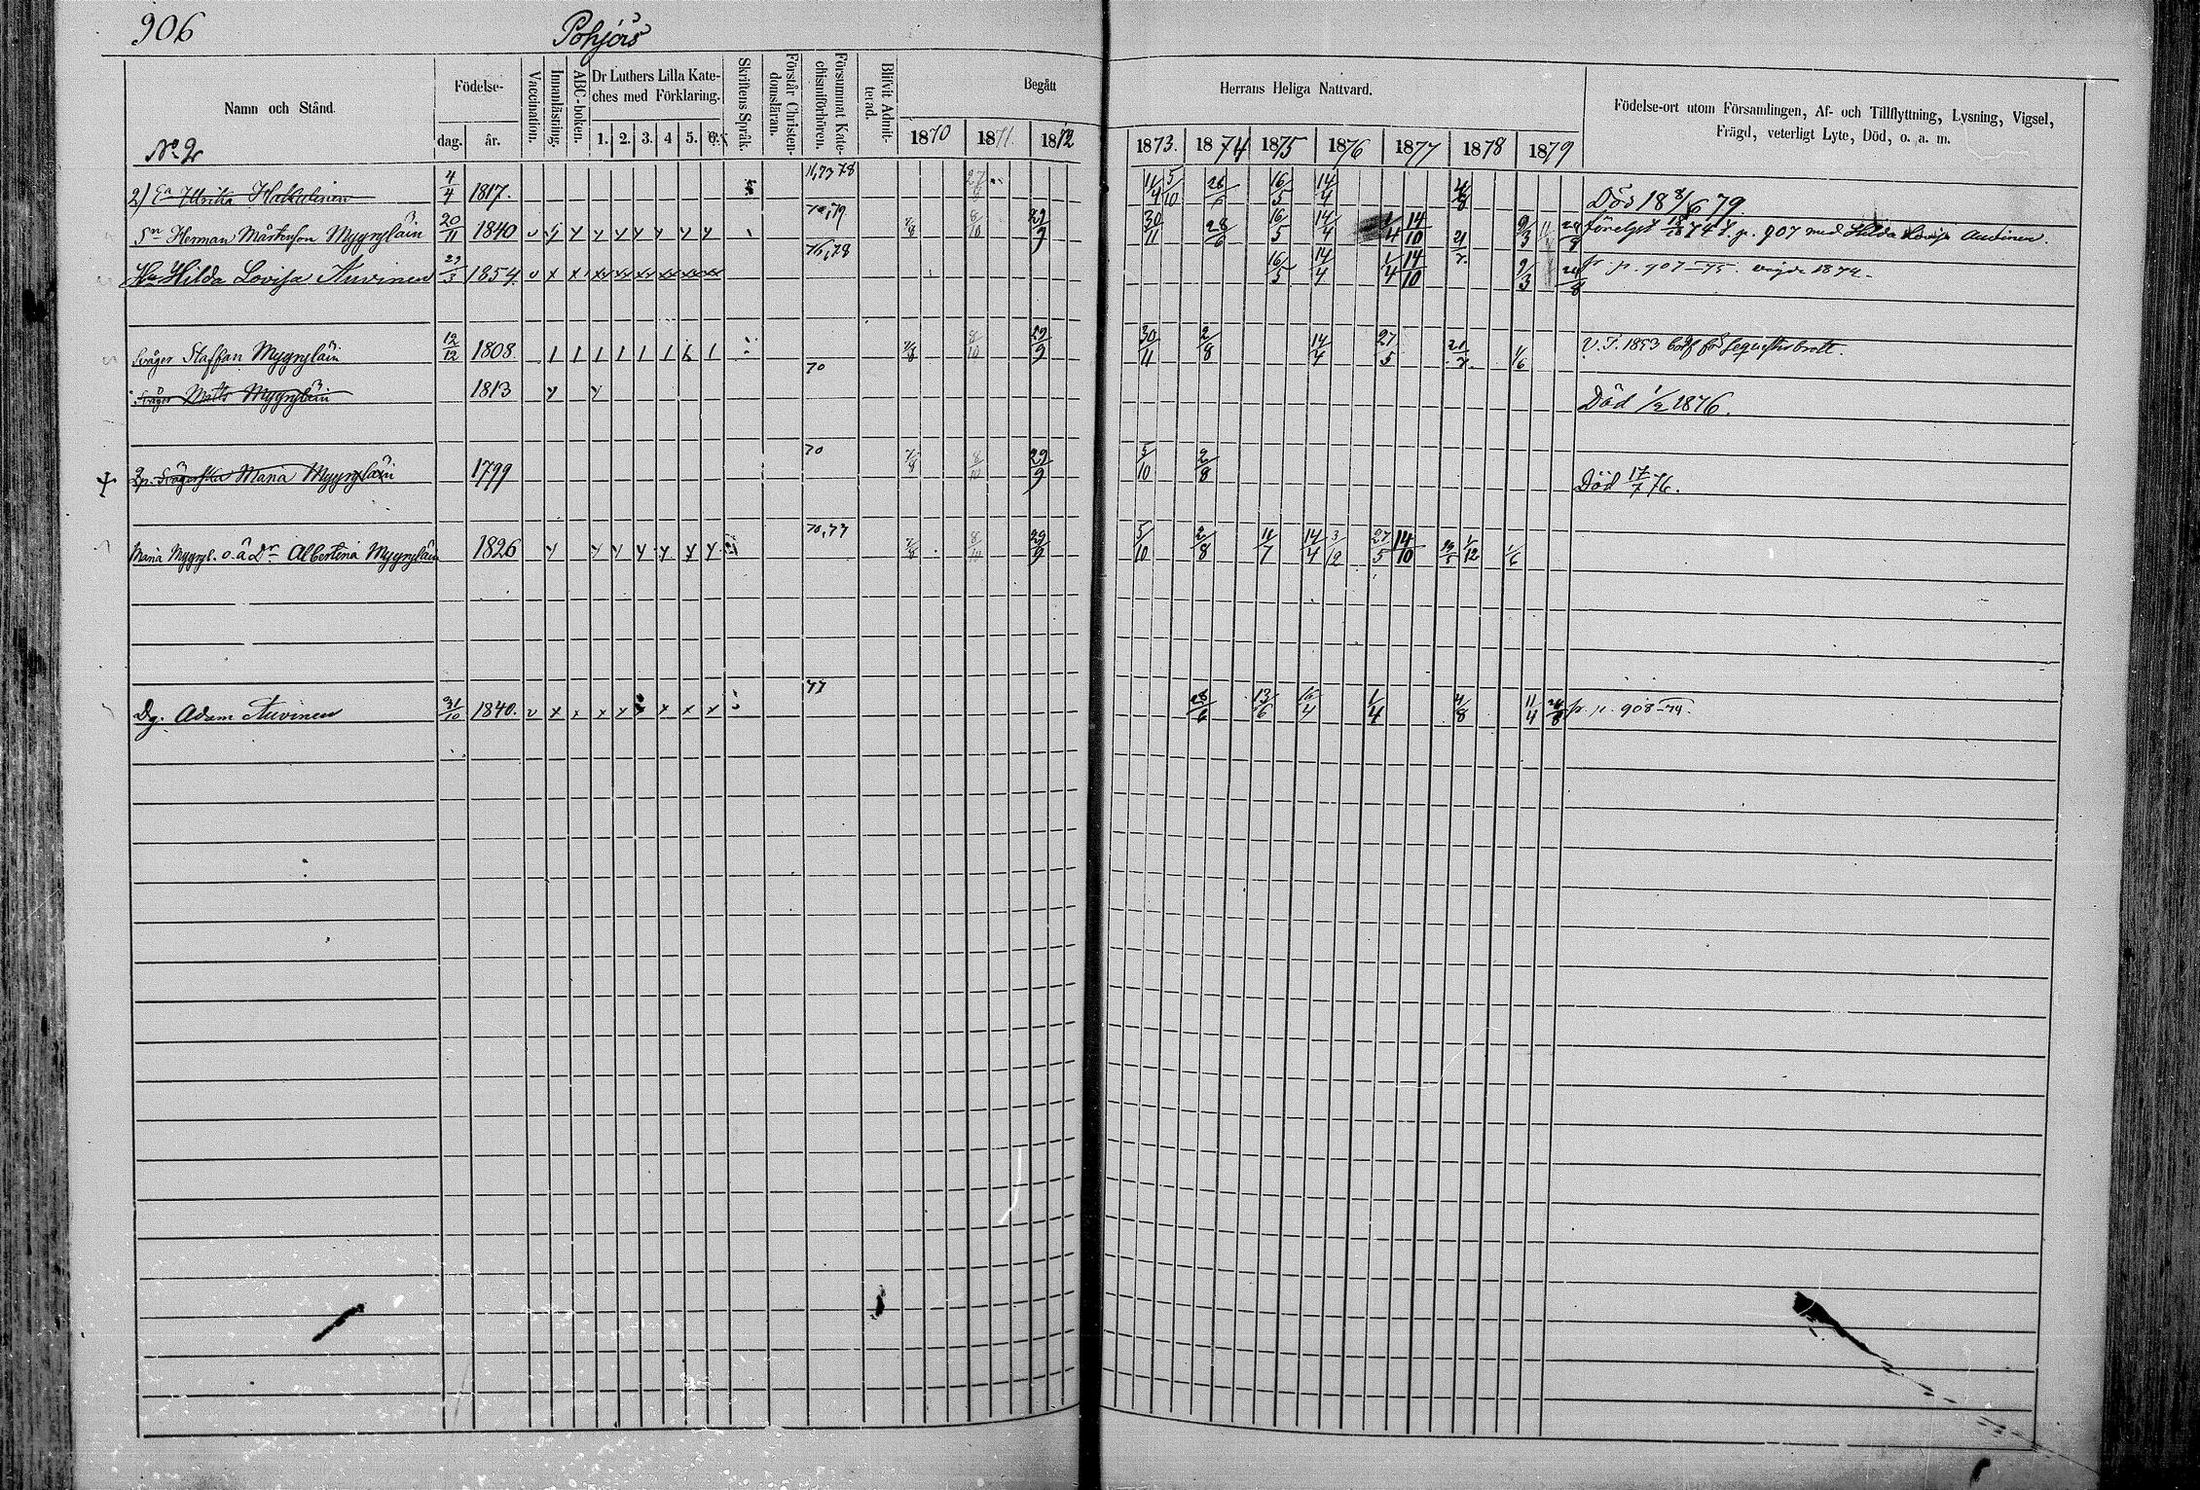 906 Pohjois
Namn och Stånd.
Födelse-
dag. år.
Vaccination.
Innanläsning.
ABC-boken.
Dr Luthers Lilla Kate-
ches med Förklaring.
1. 2. 3. 4 5. 6.
Skriftens Språk.
Förstår Christen-
domsläran.
Försummat Kate-
chismiförhören.
Blifvit Admit-
terad.
Begått
Herrans Heliga Nattvard.
1870 1871. 1872 1873. 1874 1875 1876 1877 1878 1879
Födelse-ort utom Församlingen, Af- och Tillflyttning, Lysning, Vigsel,
Frägd, veterligt Lyte, Död, o. a. m.
No 2
2) Ea Ulrika Hakkulinen 4/4 1817. 11,73 78 11/4 5/10 16/5 14/4 Död 18 8/6 79
Sn Herman Mårtenson Mygryläin 20/11 1840 7/8 8/10 29/9 30/11 28/6 16/5 14/4 1/4 14/10 9/3 74 p. 907 med Hilda Lovisa Auvinen.
Hu Hilda Lovisa Auvinen 29/3 1854. 76,78 16/5 14/4 1/4 14/10 9/3 24/8 fr. p. 907-75. 1874.
Svåger Staffan Mygryläin 12/12 1808. 7/8 8/10 29/9 30/11 2/8 14/4 27/5 21/7. 1/6 V. T. 1853
Svåger Matts Mygryläin 1813 70 Död 1/2 1876.
Svägerska Maria Mygryläin 1799 70 7/8 8/10 29/9 5/10 2/8 Död 17/7 76.
Maria Mygryl. o. ä Dr Albertina Mygryläin 1826 70,77 7/8 8/10 29/9 5/10 2/8 11/7 14/4 3/12 27/5 14/10 1/12 1/6
Dg. Adam Auvinen 31/10 1840. 77 28/6 13/6 16/4 1/4 4/8 11/4 24/8 fr. p. 908-74.